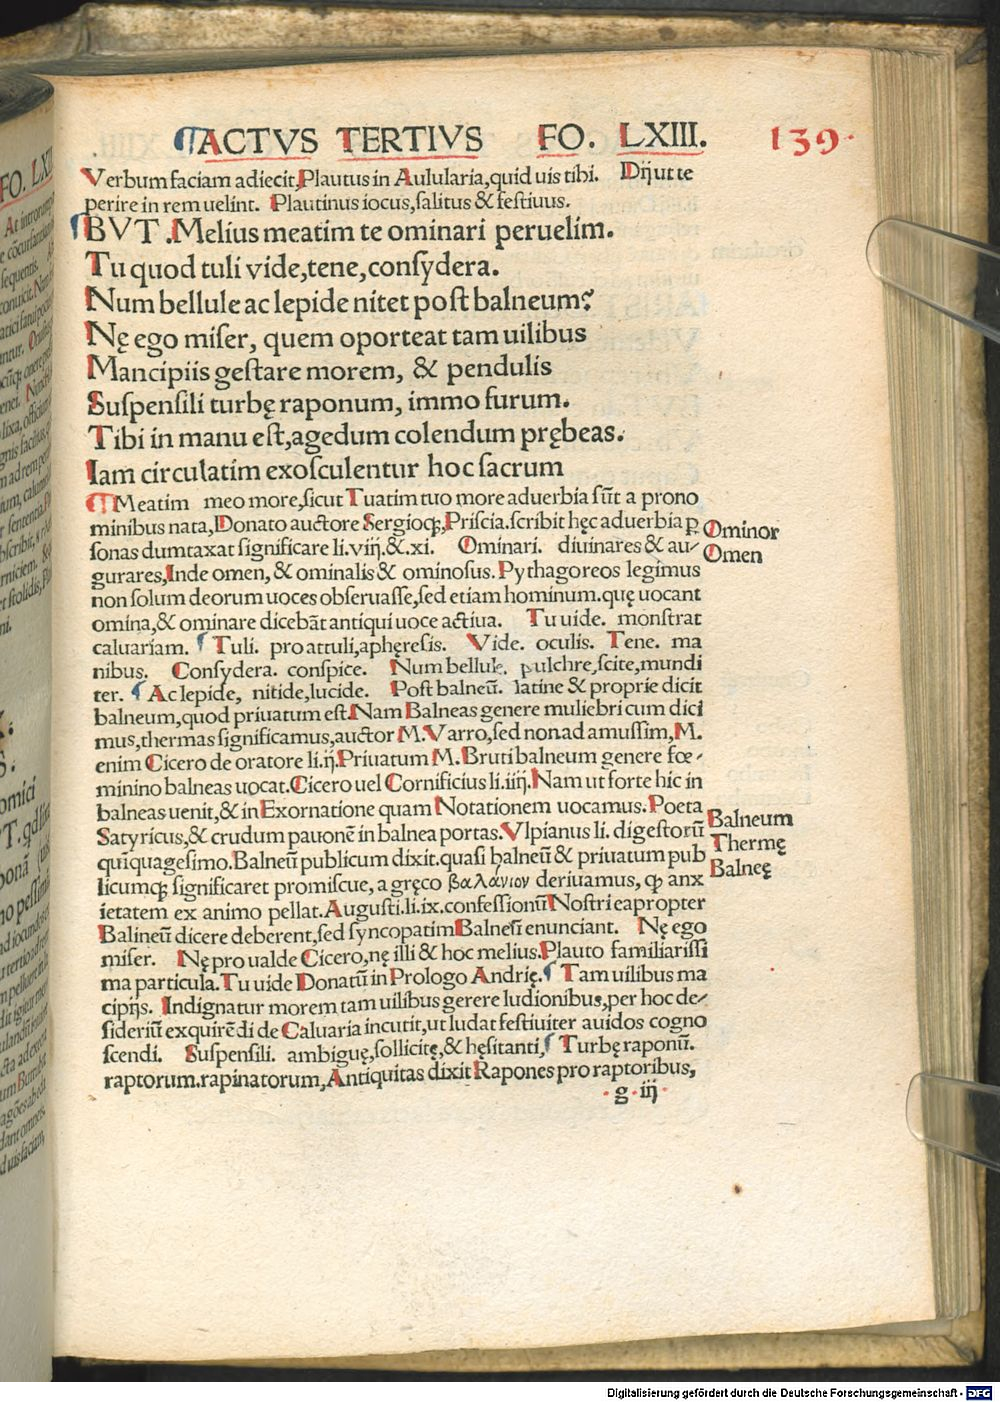 FO. LXI
¶ACTVS TERTIVS FO. LXIII. 139.
Verbum faciam adiecit, Plautus in Aulularia, quid uis tibi. Dij ut te
perire in rem uelint. Plautinus iocus, salitus & festiuus.
¶BVT. Melius meatim te ominari peruelim.
Tu quod tuli vide, tene, consydera.
Num bellule ac lepide nitet post balneum?
Nę ego miser, quem oporteat tam uilibus
Mancipiis gestare morem, & pendulis
Suspensili turbę raponum, immo furum.
Tibi in manu est, agedum colendum prębeas.
Iam circulatim exosculentur hoc sacrum
¶Meatim meo more, sicut Tuatim tuo more aduerbia sūt a prono
minibus nata, Donato auctore Sergioqꝫ, Priscia. scribit hęc aduerbia ꝑ
sonas dumtaxat significare li. viij. &. xi. Ominari. diuinares & au⸗
Ominor
Omen
gurares, Inde omen, & ominalis & ominosus. Pythagoreos legimus
non solum deorum uoces obseruasse, sed etiam hominum. quę uocant
omina, & ominare dicebāt antiqui uoce actiua. Tu uide. monstrat
caluariam. ¶ Tuli. pro attuli, aphęresis. Vide. oculis. Tene. ma
nibus. Consydera. conspice. Num bellule. pulchre, scite, mundi
ter. ¶ Ac lepide, nitide, lucide. Post balneū. latine & proprie dicit
balneum, quod priuatum est. Nam Balneas genere muliebri cum dici
mus, thermas significamus, auctor M. Varro, sed non ad amussim, M.
enim Cicero de oratore li. ij. Priuatum M. Bruti balneum genere fœ⸗
minino balneas uocat. Cicero uel Cornificius li. iiij. Nam ut forte hic in
balneas uenit, & in Exornatione quam Notationem uocamus. Poeta
Satyricus, & crudum pauonē in balnea portas. Vlpianus li. digestorū
Balneum
Thermę
Balneę
quīquagesimo. Balneū publicum dixit. quasi balneū & priuatum pub
licumqꝫ significaret promiscue, a gręco βαλάνιον deriuamus, ꝙ anx
ietatem ex animo pellat. Augusti. li. ix. confessionū Nostri eapropter
Balineū dicere deberent, sed syncopatim Balneū enunciant. Nę ego
miser. Nę pro ualde Cicero, nę illi & hoc melius. Plauto familiarissi
ma particula. Tu uide Donatū in Prologo Andrię. ¶ Tam uilibus ma
cipijs. Indignatur morem tam uilibus gerere ludionibus, per hoc de⸗
sideriū exquirēdi de Caluaria incutit, ut ludat festiuiter auidos cogno
scendi. Suspensili. ambiguę, sollicitę, & hęsitanti, ¶ Turbę raponū.
raptorum. rapinatorum, Antiquitas dixit Rapones pro raptoribus,
·g·iij·
Digitalisierung gefördert durch die Deutsche Forschungsgemeinschaft - DFG